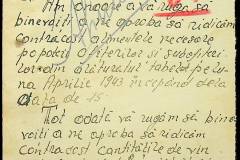 Am onoare a vă ruga să
binevoiți a ne aproba să ridicăm
contracost alimentele necesare
popotei ofițerilor și subofițeri
lor din alăturatul tabel pe lu
na Aprilie 1943 începând dela
data de 15.
Tot odată vă rugăm să bine
voiți a ne aproba să ridicăm
contracost cantitățile de vin